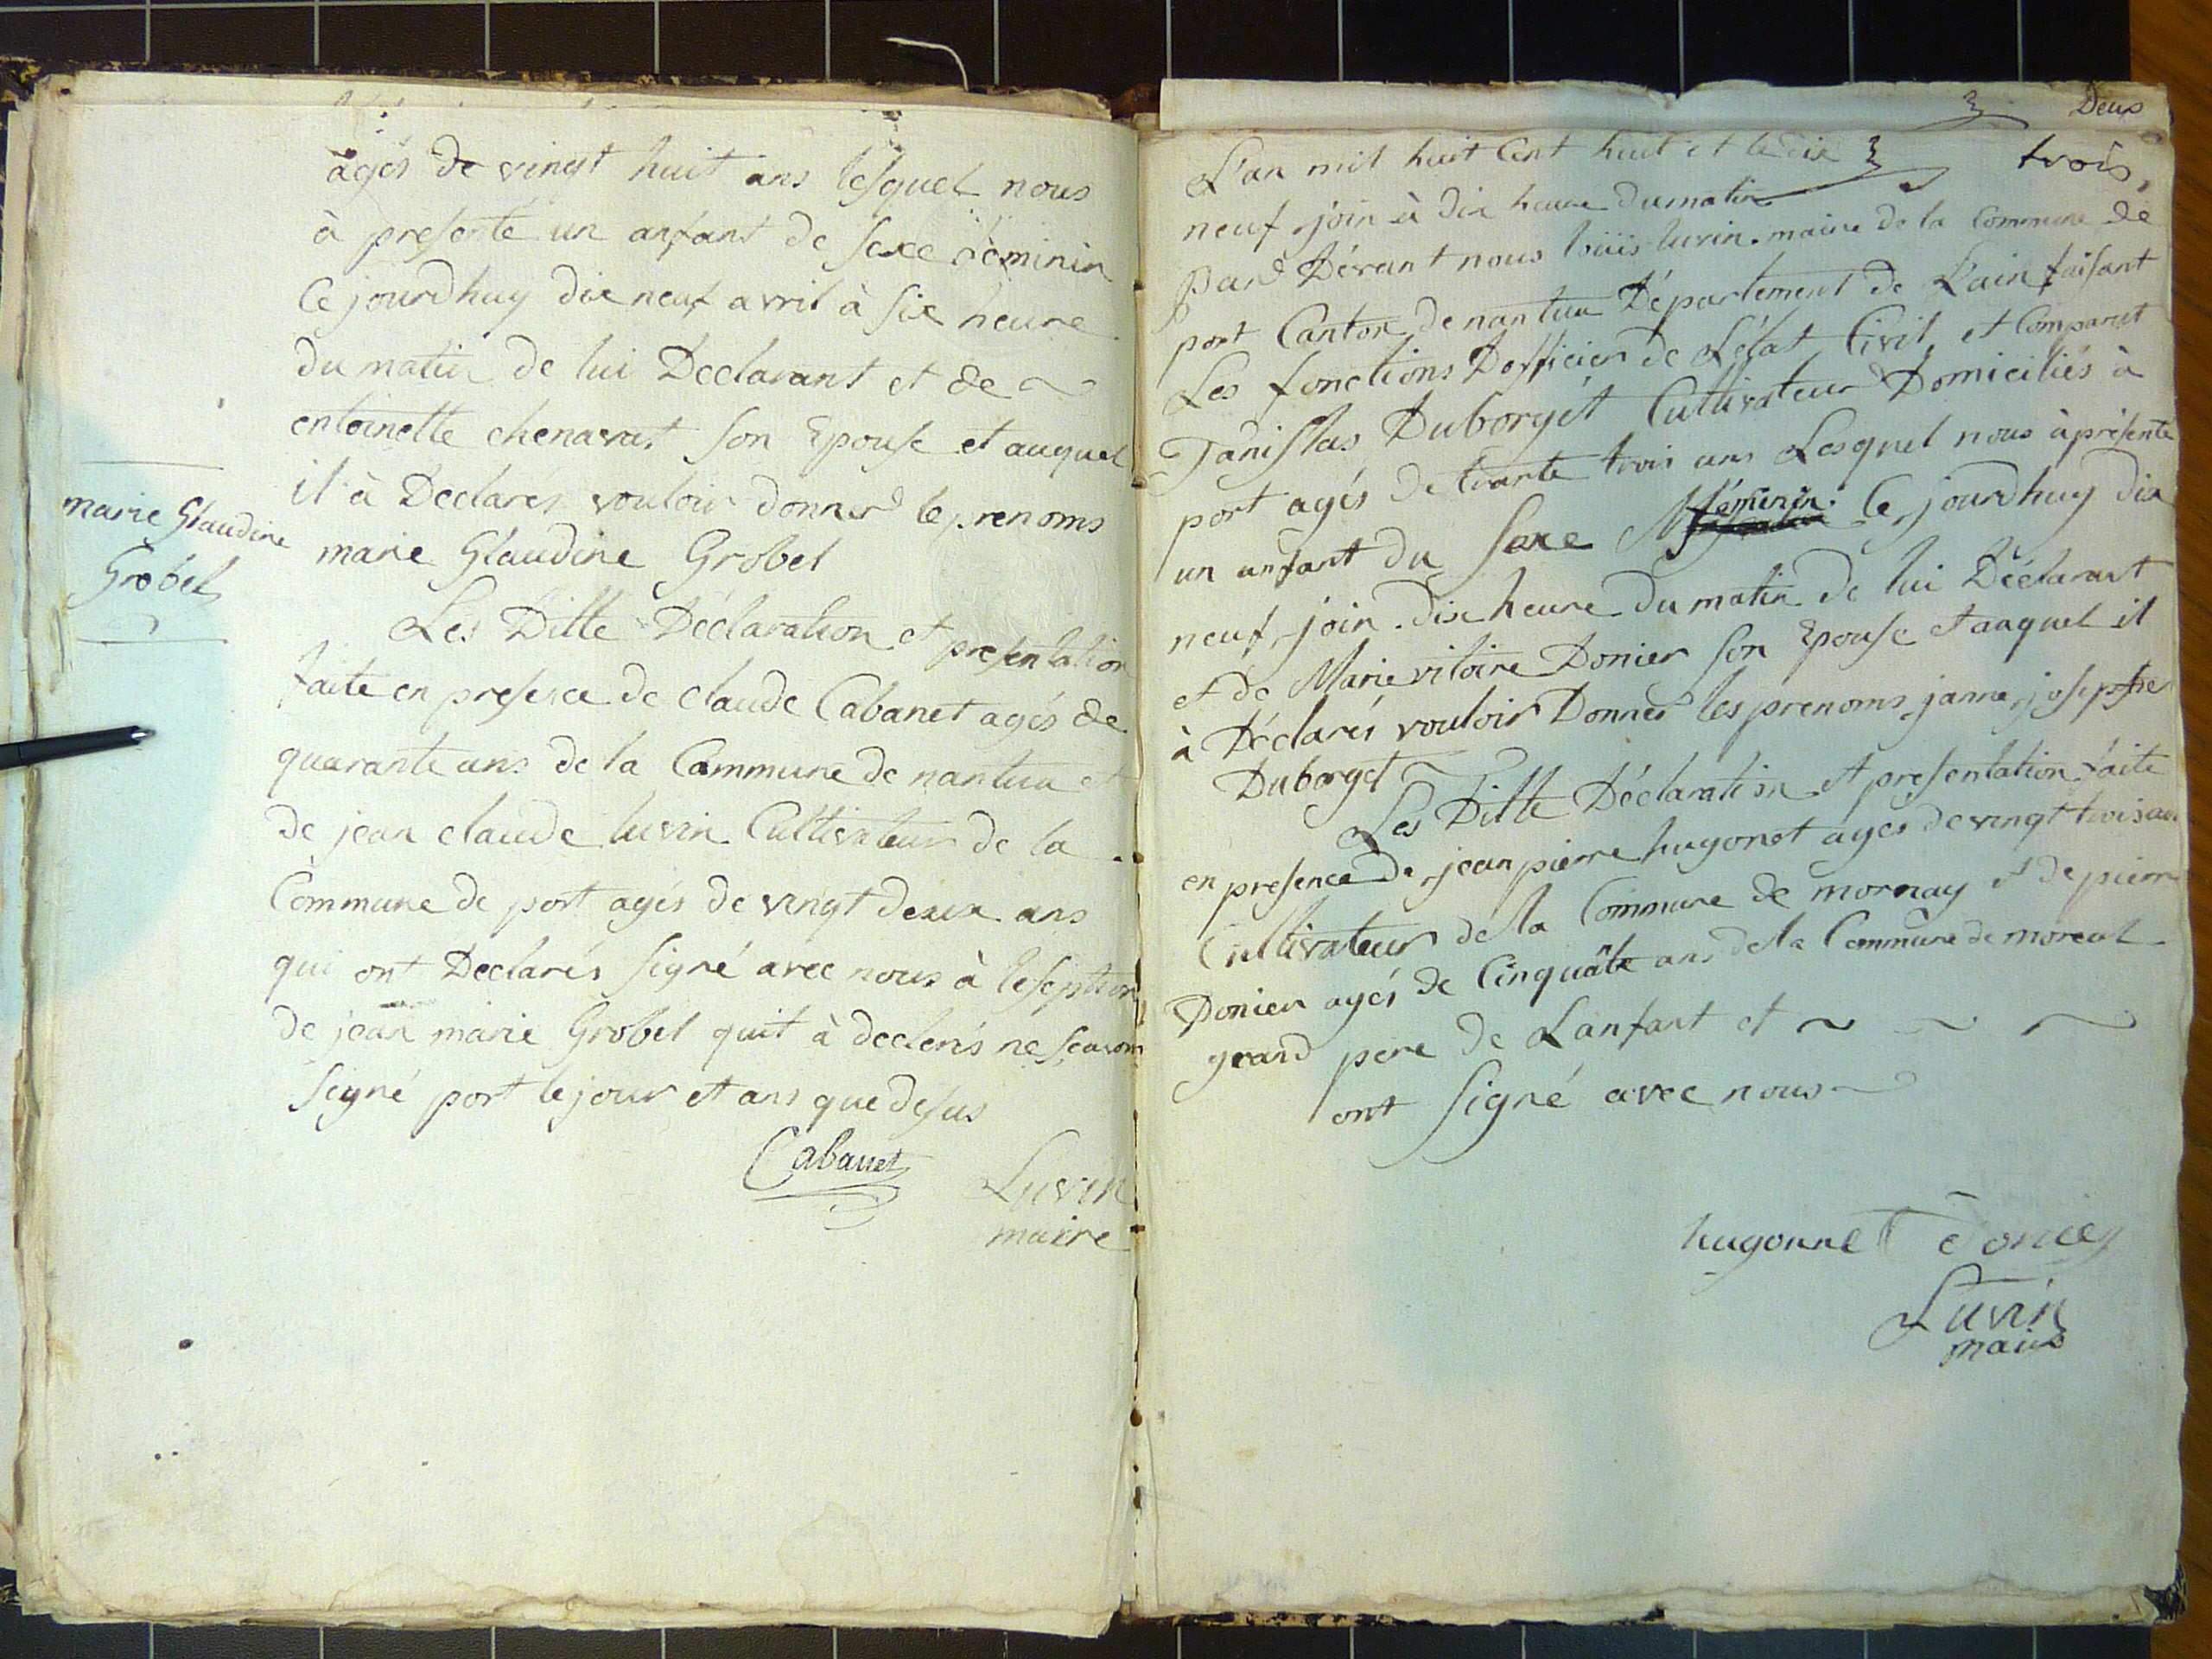 agés de vingt huit ans lesquel nous
à presenté un anfant de sexe féminin
Ce jourdhuy dix neuf avril à six heure
du matin de lui Declarant et de ~
entoinette chenavat son Epouse et auquel
il à Declarés vouloir donner le prenoms
marie Glaudine Grobel
marie Glaudine
Grobel
Les Ditte Déclaration et presentation
faite en presence de claude Cabanet agés de
quarante ans de la Commune de nantua et
de jean claude luvin Cultivateur de la
Commune de port agés de vingt deux ans
qui ont Declarés signé avec nous à leseption
de jean marie Grobel quit à declerés ne scavoir
signé port le jour et ans que desus
Cabanet
Luvin
maire
Deux
trois
L'an mil huit Cent huit et le dix
neuf join à dix heure du matin
Par Dévant nous loüis luvin maire de la Commune de
port Canton de nantua Département de L'ain faisant
Les fonctions Dofficier de L'état Civil, et Comparut
Tanislas Duborgét Cultivateur Domiciliés à
port agés de trante trois ans Lesquel nous à présenté
un anfant du Sexe féminin Ce jourdhuy dix
neuf join dix heure du matin de lui Déclarant
et de Marie vitoire Donier son Epouse et auquel il
à Déclarés vouloir Donner les prenoms janne josephe
Duborget
Les Ditte Déclaration et presentation faite
en presence de jean pierre hugonet agés de vingt trois ans
Cultivateur de la Commune de mornay et de pierre
Donier agés de Cinquãte ans de la Commune de
grand pere de L'anfant et ~ ~ ~
ont signé avec nous ~
hugonnet donier
Luvin
maire